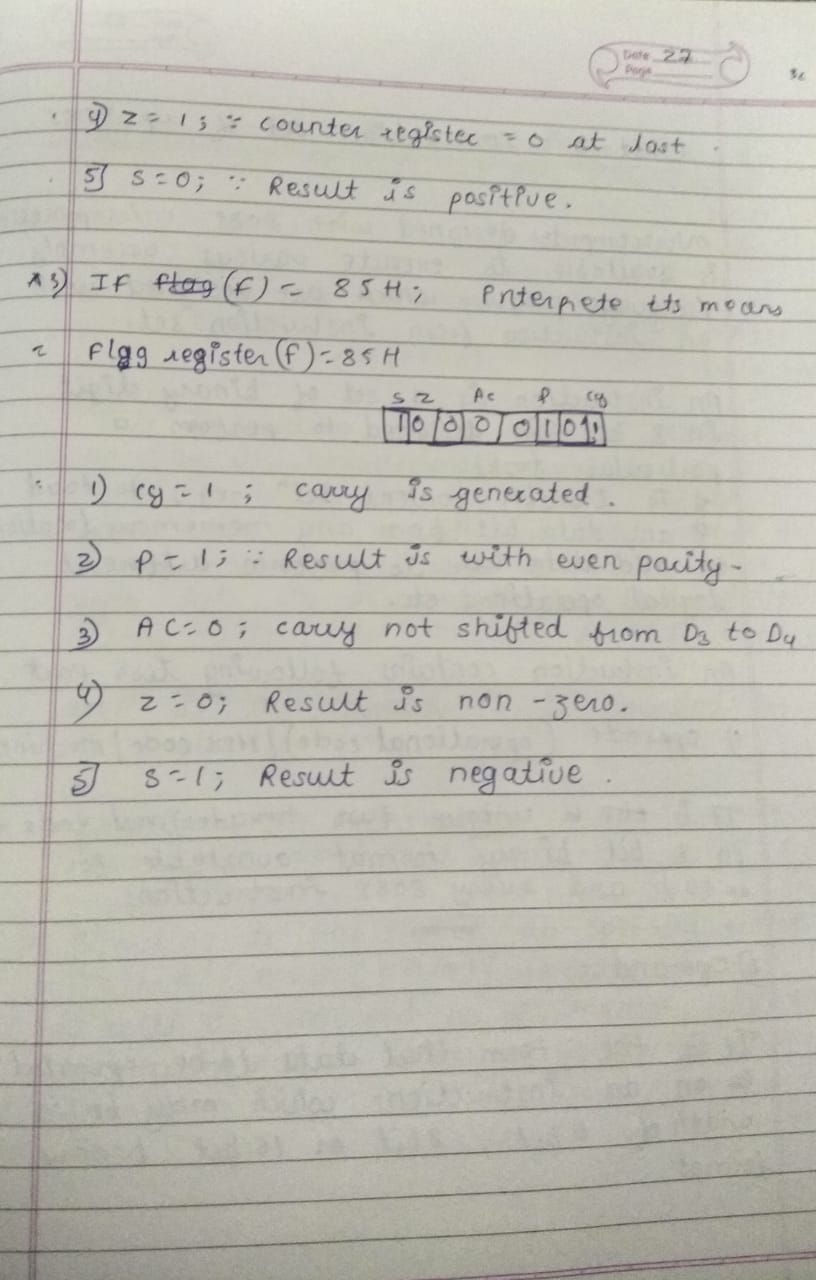 Date 27
Page
4) z = 1 ; ∵ counter register = 0 at last .
5] s = 0; ∵ Result is positive.
3) If flag (f) = 85H; Interprete its means
= Flag register (f) = 85H
S Z Ac P Cy
1 0 0 0 0 1 0 1
1) cy = 1 ; carry is generated .
2) P = 1 ; ∵ Result is with even parity -
3) AC = 0 ; carry not shifted from D3 to D4
4) z = 0; Result is non - zero.
5] S = 1 ; Result is negative .